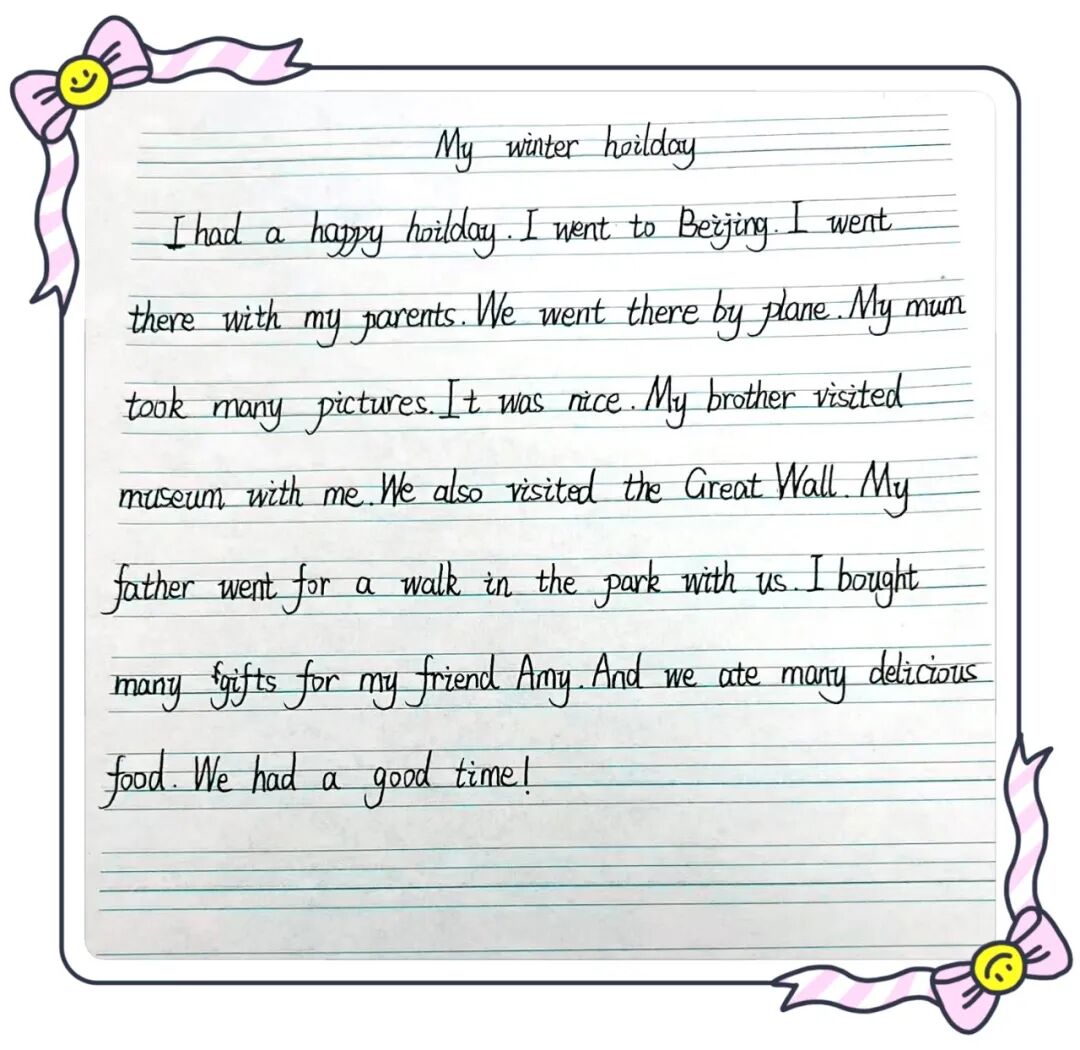 My winter hoilday
I had a happy hoilday. I went to Beijing. I went
there with my parents. We went there by plane. My mum
took many pictures. It was nice. My brother visited
museum with me. We also visited the Great Wall. My
father went for a walk in the park with us. I bought
many gifts for my friend Amy. And we ate many delicious
food. We had a good time!